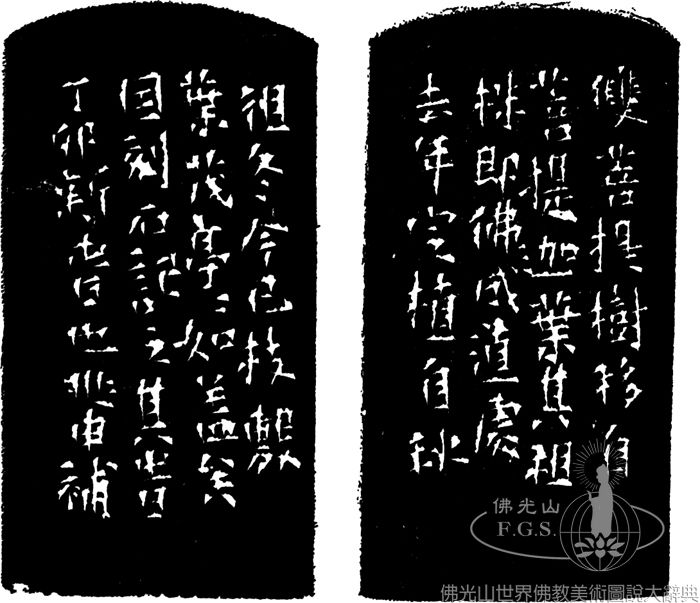 雙菩提樹移自
菩提迦葉其祖
株即佛成道處
去年定植自秋
徂冬今已枝繁
葉茂亭〻如盖矣
因刻石記之其旹
丁卯新旾也兆申補
佛光山
F.G.S.
佛光山世界佛教美術圖說大辭典